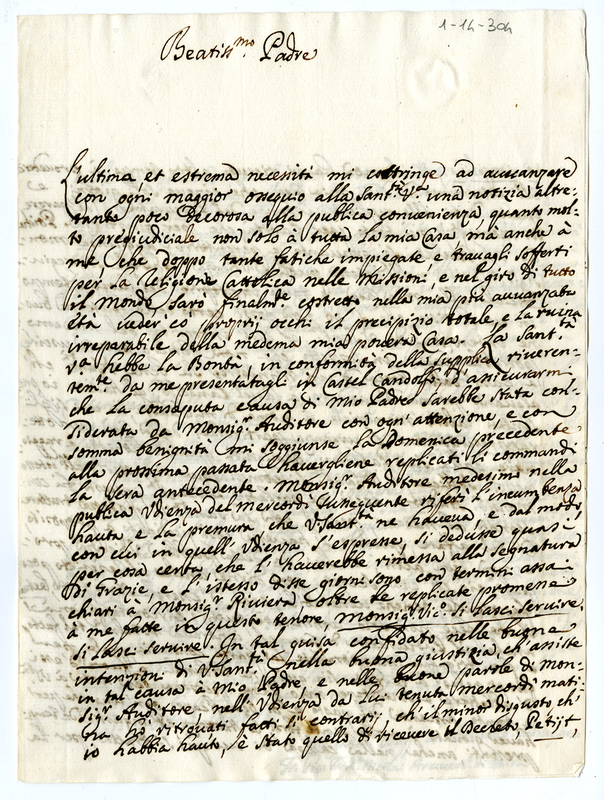 1-14-304
Beatiss.mo Padre
L'ultima et estrema necessità mi costringe ad avvanzare
con ogni maggior ossequio alla Sant.tà V.a una notizia altre-
tanto poco decorosa alla publica convenienza, quanto mol-
to pregiudiciale non solo à tutta la mia Casa mà anche à
me, che doppo tante fatiche impiegate e travagli sofferti
per la Religione Cattolica nelle Missioni, e nel giro di tutto
il Mondo sarò finalm.te costretto nella mia più avvanzata
età veder co' proprij occhi il precipizio totale e la ruina
irreparabile della medema mia povera Casa. La Sant.tà
V.a hebbe la Bontà, in conformità della supplica riveren-
tem.te da me presentatagli in Castel Gandolfo, d'assicurarmi
che la consaputa causa di Mio Padre sarebbe stata con-
siderata da Monsig.r Auditore con ogn'attenzione, e con
somma benignità mi soggiunse la Domenica precedente
alla prossima passata havergliene replicati li commandi
la sera antecedente. Monsig.r Auditore medesimo nella
publica Udienza del mercordì susseguente riferì l'incumbenza
hauta e la premura che V. Sant.tà ne haveva, e dal modo
con cui in quell'Udienza s'espresse, si dedusse quasi
per cosa certa che l'haverebbe rimessa alla Segnatura
di Grazie, e l'istesso disse giorni sono con termini assai
chiari à Monsig.r Riviera oltre le replicate promesse
à me fatte in questo tenore, Monsig.r Vic.o si lasci servire,
si lasci servire. In tal guisa confidato nelle buone
intenzioni di V. Sant.tà nella buona giustizia, ch'assiste
in tal causa à Mio Padre, e nelle buone parole di Mon-
sig.r Auditore, nell'Udienza da Lui tenuta mercordì mati-
na hò ritrovati fatti sì contrarij, ch'il minor disgusto ch'
io habbia hauto, è stato quello di ricevere il Decreto, Petijt,